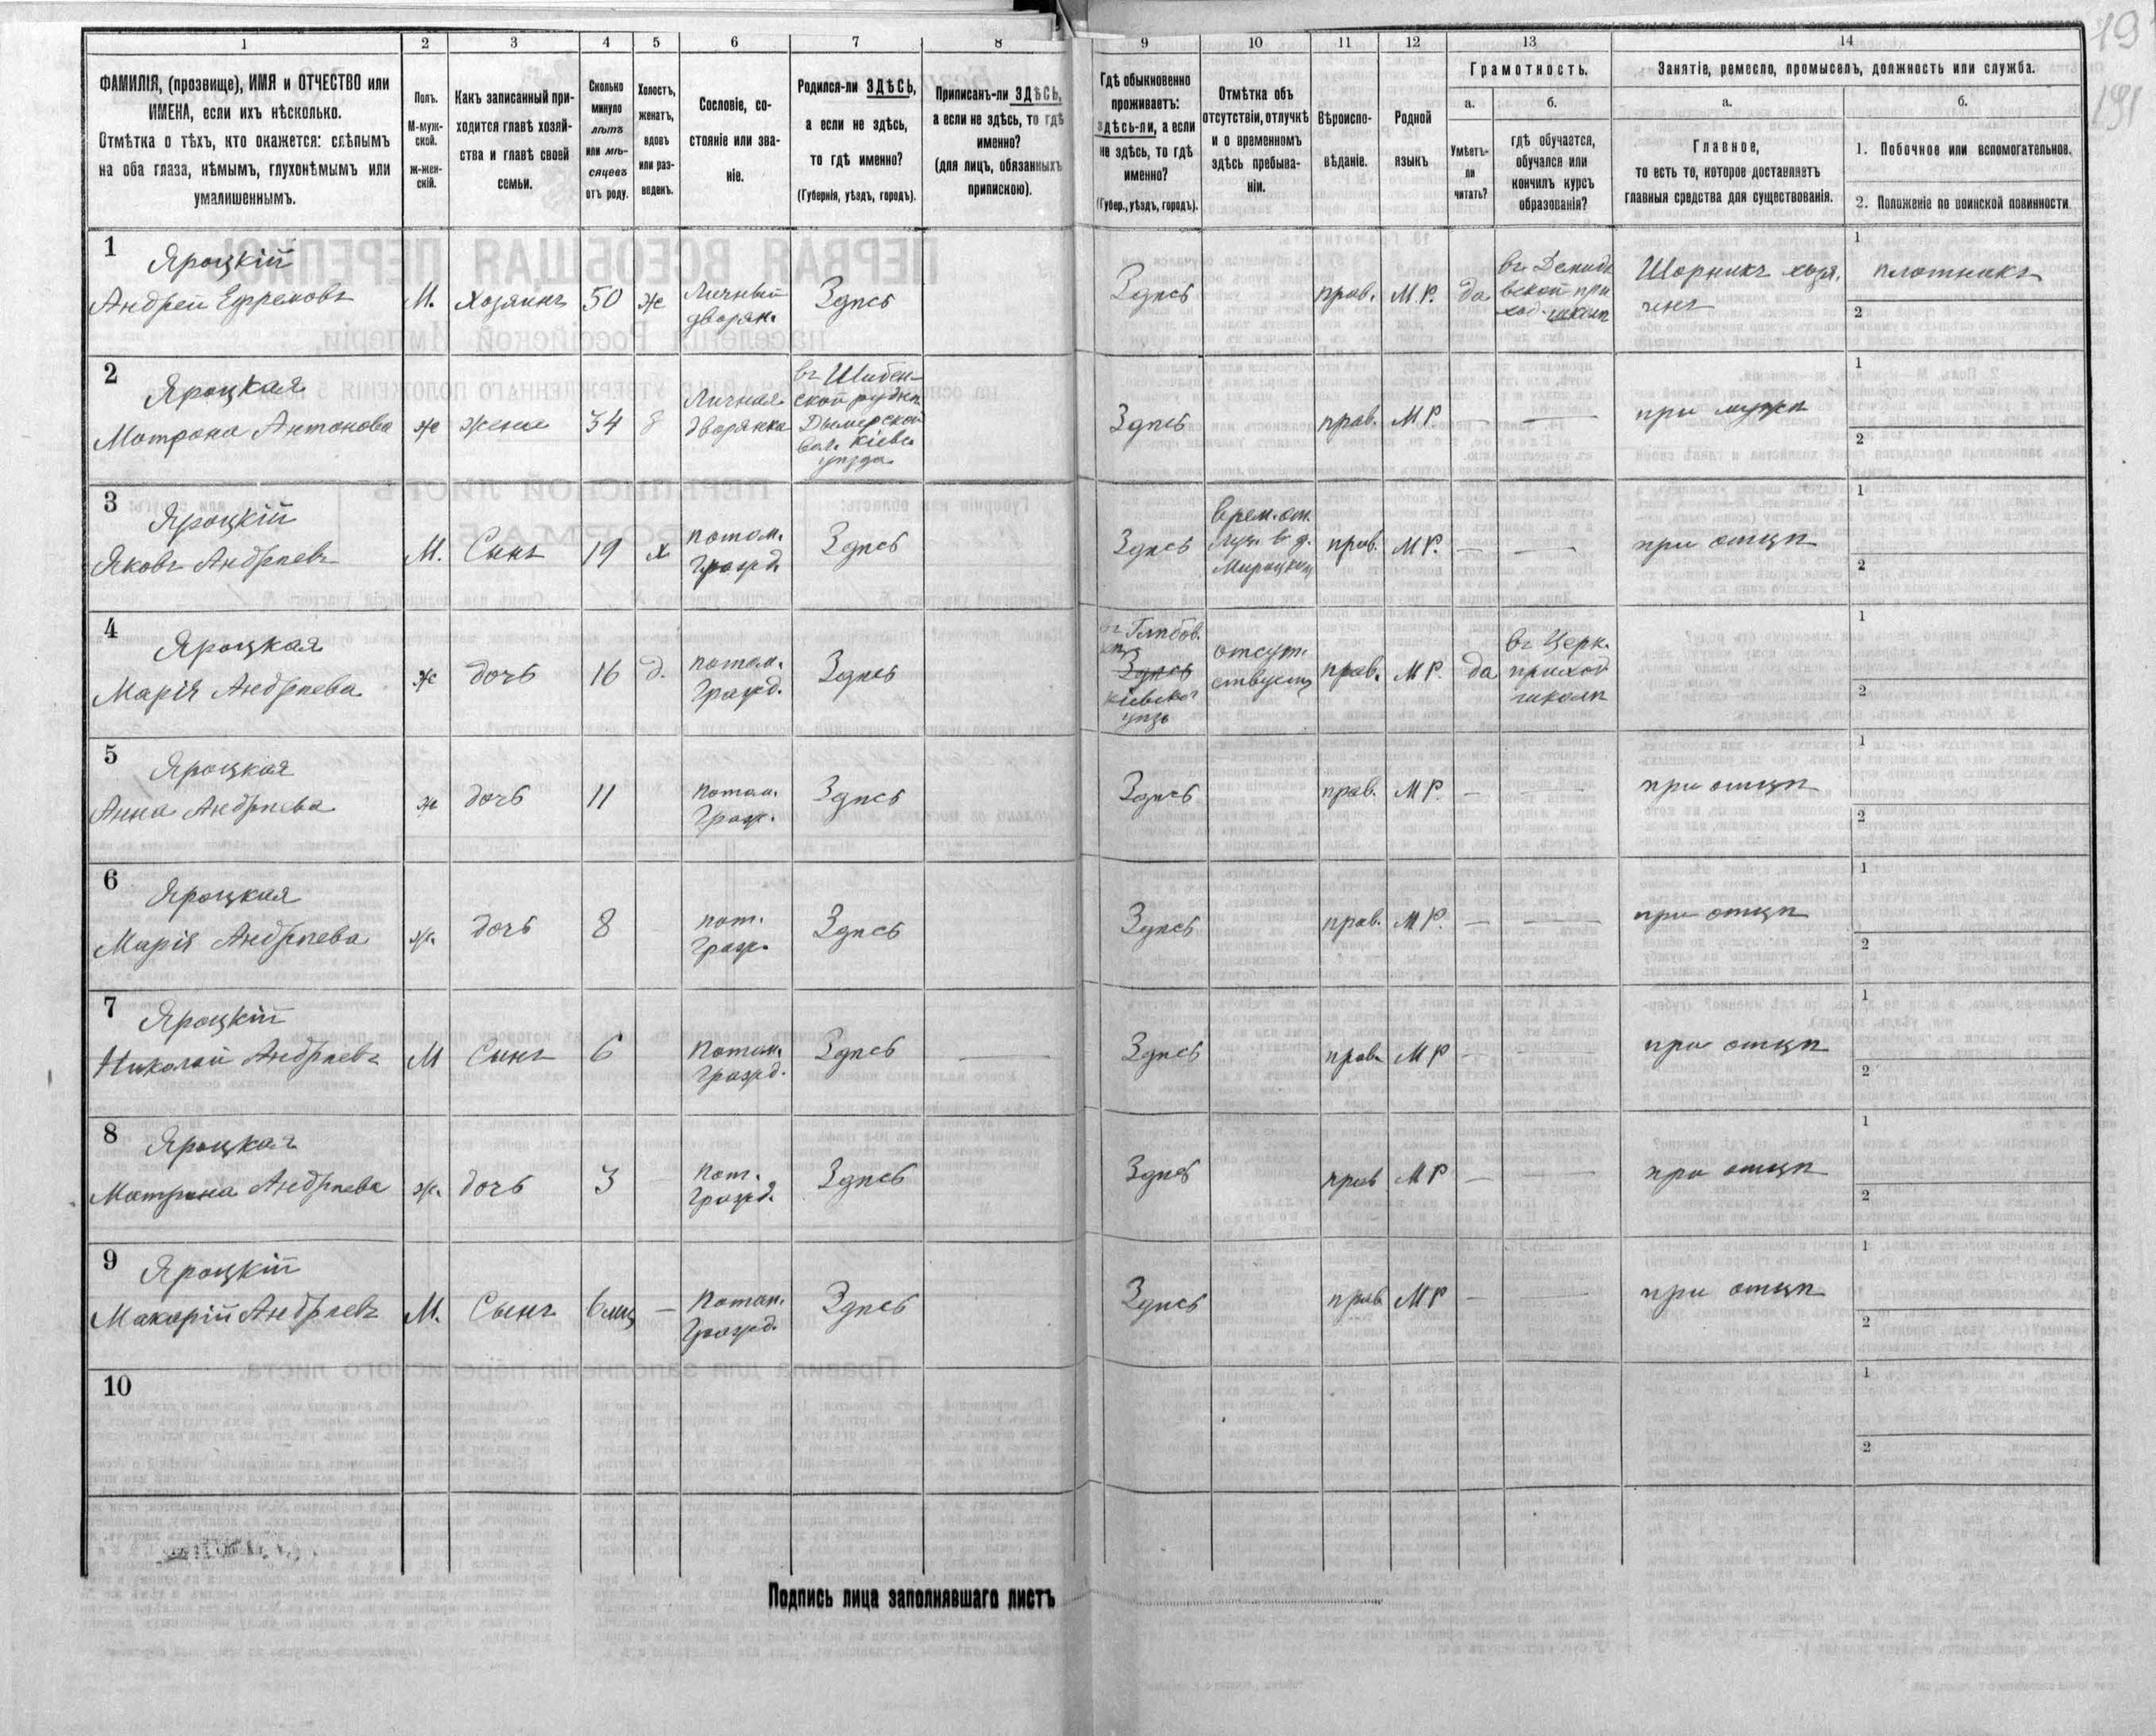 19
191
1 2 3 4 5 6 7 8 9 10 11 12 13 14
ФАМИЛІЯ, (прозвище), ИМЯ и ОТЧЕСТВО или
ИМЕНА, если ихъ нѣсколько.
Отмѣтка о тѣхъ, кто окажется: слѣпымъ
на оба глаза, нѣмымъ, глухонѣмымъ или
умалишеннымъ.
Полъ.
М-муж-
ской.
ж-жен-
скій.
Какъ записанный при-
ходится главѣ хозяй-
ства и главѣ своей
семьи.
Сколько
минуло
лѣтъ
или мѣ-
сяцевъ
отъ роду.
Холостъ,
женатъ,
вдовъ
или раз-
веденъ.
Сословіе, со-
стояніе или зва-
ніе.
Родился-ли ЗДѢСЬ,
а если не здѣсь,
то гдѣ именно?
(Губернія, уѣздъ, городъ).
Приписанъ-ли ЗДѢСЬ,
а если не здѣсь, то гдѣ
именно?
(для лицъ, обязанныхъ
припискою).
Гдѣ обыкновенно
проживаетъ:
здѣсь-ли, а если
не здѣсь, то гдѣ
именно?
(Губер., уѣздъ, городъ).
Отмѣтка объ
отсутствіи, отлучкѣ
и о временномъ
здѣсь пребыва-
ніи.
Вѣроиспо-
вѣданіе.
Родной
языкъ
Грамотность.
а.
Умѣетъ-
ли
читать?
б.
гдѣ обучается,
обучался или
кончилъ курсъ
образованія?
Занятіе, ремесло, промыселъ, должность или служба.
а.
Главное,
то есть то, которое доставляетъ
главныя средства для существованія.
б.
1. Побочное или вспомогательное.
2. Положеніе по воинской повинности
1
Яроцкій
Андрей Ефремовъ
М.
хозяинъ
50
же
Личный
дворян.
Здѣсь
Здѣсь
прав.
М.Р.
да
въ Демидо
вской при
ход. школѣ
Шорникъ
1
плотникъ
2
2
Яроцкая
Матрона Антонова
же
жена
34
Личная
дворянка
въ Шибен-
ской руднѣ
Дымерской
вол. Кіевс.
уѣзда
Здѣсь
прав.
М.Р.
—
—
при мужѣ
1
2
3
Яроцкій
Яковъ Андрѣевъ
М.
Сынъ
19
х
потом.
гражд.
Здѣсь
Здѣсь
Врем. от.
Мироцкой
прав.
М Р.
—
—
при отцѣ
1
2
4
Яроцкая
Марія Андрѣева
же
дочь
16
д.
потом.
гражд.
Здѣсь
въ Глѣбов.
Здѣсь
Кіевског
уѣзь
отсут-
ствуетъ
прав.
М Р.
да
въ Церк.
приход
школѣ
1
2
5
Яроцкая
Анна Андрѣева
же
дочь
11
потом.
граж.
Здѣсь
Здѣсь
прав.
М Р.
—
—
при отцѣ
1
2
6
Яроцкая
Марія Андрѣева
ж.
дочь
8
пот.
граж.
Здѣсь
Здѣсь
прав.
М Р.
—
—
при отцѣ
1
2
7
Яроцкій
Николай Андрѣевъ
М
Сынъ
6
Потом.
гражд.
Здѣсь
—
Здѣсь
прав.
М Р
—
—
при отцѣ
1
2
8
Яроцкая
Матрона Андрѣева
ж.
дочь
3
Пот.
гражд.
Здѣсь
Здѣсь
прав
М Р
—
—
при отцѣ
1
2
9
Яроцкій
Макарій Андрѣевъ
М.
Сынъ
6 мц
—
Потом.
гражд.
Здѣсь
Здѣсь
прав
М Р
—
—
при отцѣ
1
2
10
1
2
Подпись лица заполнявшаго листъ